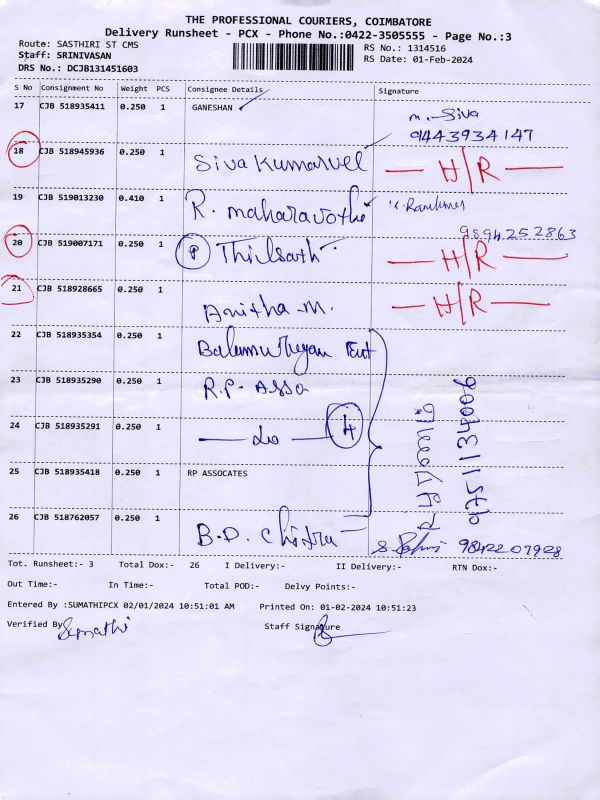 THE PROFESSIONAL COURIERS, COIMBATORE
Delivery Runsheet - PCX - Phone No.:0422-3505555 - Page No.:3
Route: SASTHIRI ST CMS
RS No.: 1314516
Staff: SRINIVASAN
RS Date: 01-Feb-2024
DRS No.: DCJB131451603
S No Consignment No Weight PCS Consignee Details Signature
17 CJB 518935411 0.250 1 GANESHAN m. Siva
9443934147
18 CJB 518945936 0.250 1 Sivakumarvel H/R
19 CJB 519013230 0.410 1 R. maharavothi
9894252863
20 CJB 519007171 0.250 1 P Thilsath H/R
21 CJB 518928665 0.250 1 Anitha-M. H/R
22 CJB 518935354 0.250 1 Balamurugan
23 CJB 518935290 0.250 1 R.P- Asso
24 CJB 518935291 0.250 1 do 4
9751134006
25 CJB 518935418 0.250 1 RP ASSOCATES
26 CJB 518762057 0.250 1 B.D. Chitra 9842207928
Tot. Runsheet:- 3 Total Dox:- 26 I Delivery:- II Delivery:- RTN Dox:-
Out Time:- In Time:- Total POD:- Delvy Points:-
Entered By :SUMATHIPCX 02/01/2024 10:51:01 AM Printed On: 01-02-2024 10:51:23
Verified By Sumathi Staff Signature